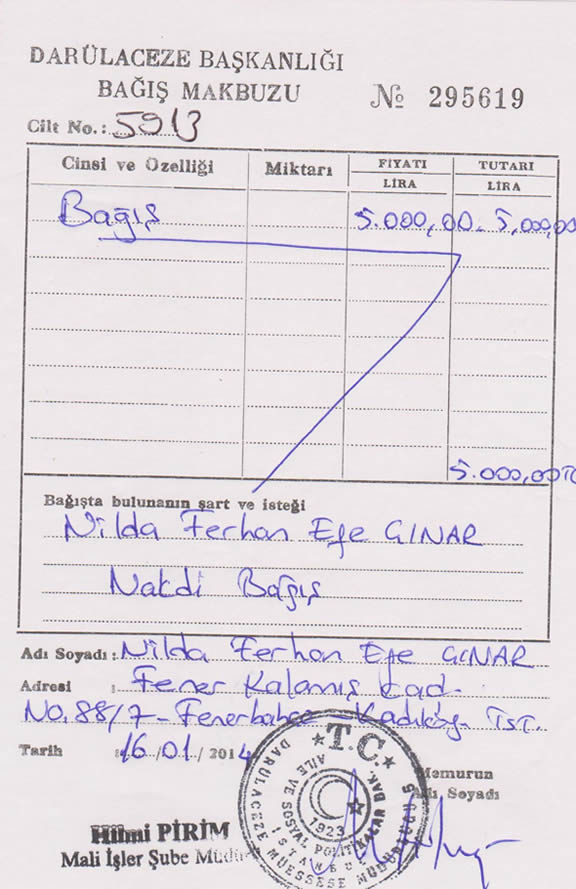 DARÜLACEZE BAŞKANLIĞI
BAĞIŞ MAKBUZU
№ 295619
Cilt No.: 5913
Cinsi ve Özelliği Miktarı FİYATI TUTARI
LİRA LİRA
Bağış 5.000,00- 5,000,00
5.000,00
Bağışta bulunanın şart ve isteği
Nilda Ferhan Efe GINAR
Nakdi Bağış
Adı Soyadı: Nilda Ferhan Efe GINAR
Adresi : Fener Kalamış Cad.
No. 88/7 - Fenerbahçe - Kadıköy - İST.
Tarih : 16/01/2014
Memurun
Adı Soyadı
Hilmi PİRİM
Mali İşler Şube Müdür
T.C.
AİLE VE SOSYAL POLİTİKALAR BAK.
DARÜLACEZE MÜESSESE MÜDÜRLÜĞÜ
İSTANBUL
1923